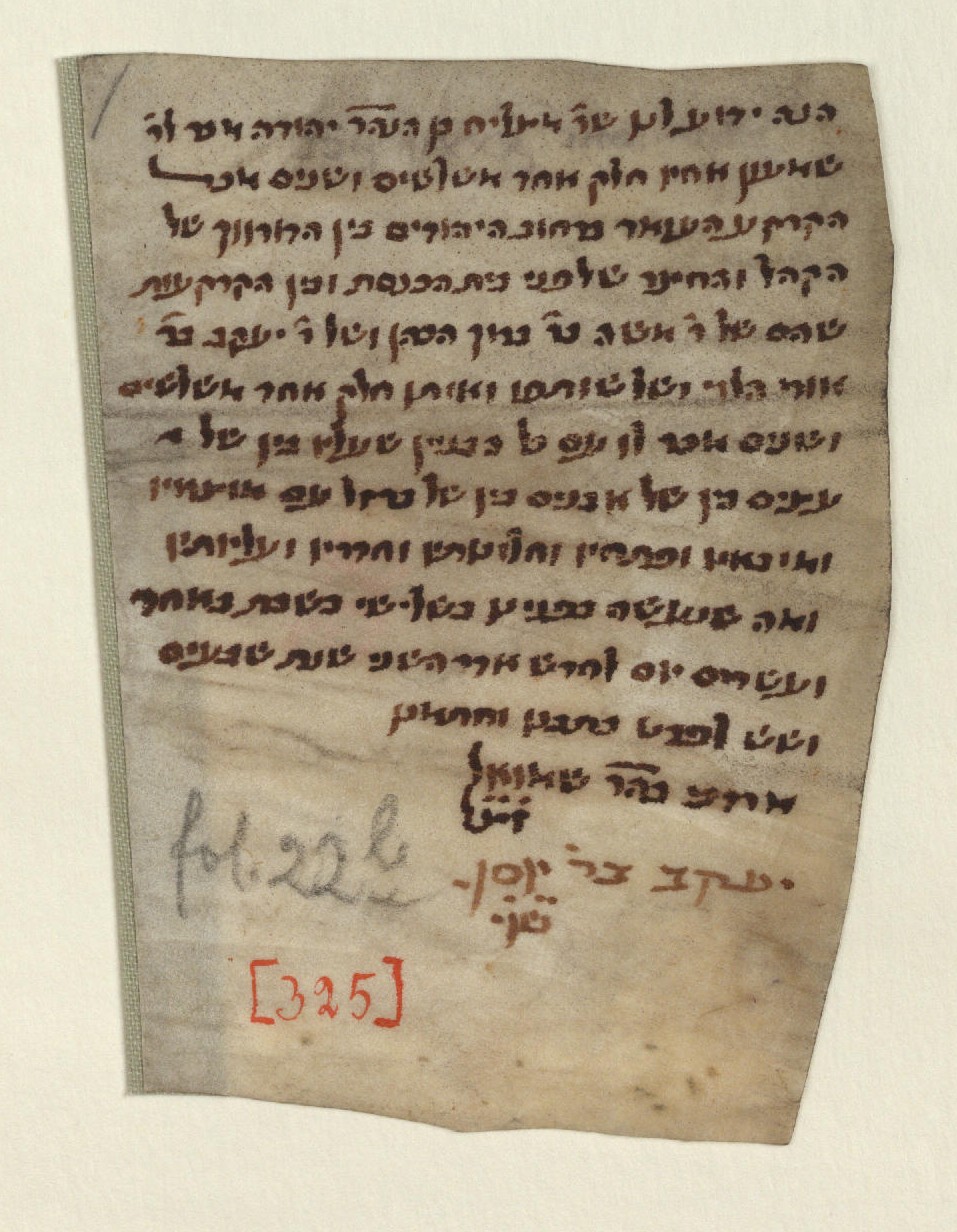 הנה ידוע לכן שר׳ אעליח בן הנהר׳ יהודה אשר לר׳
שאנען אחיו חלק אחד משלשים ושנים אשר
הקרקע העואר ברחוב היהודים בין הדורוון של
הקהל והחיצר שלפני בית הכנסת ובין הקרקעות
שהם של ר׳ משה בר׳ ברוך הכהן ושל ר׳ יעקב בר׳
אורי הלוי ושל שותפו ואותו חלק אחד משלשים
ושנים אשר לו עם כל הבנין שעליו בין של
עצים בין של אבנים בין של ברזל עם מוצאיו
ומובאיו ופתחיו וחלונותיו וחדריו ועליותיו
וזה שנעשה בפנינו בשלישי בשבת באחד
ועשרים יום לחדש אדר השני שנת שבעים
ושש לפרט כתבנו וחתמנו
מרדכי בהר׳ שמואל
זצ״ל
יעקב בר׳ יוסף
שי׳
fol. 22 b
[325]